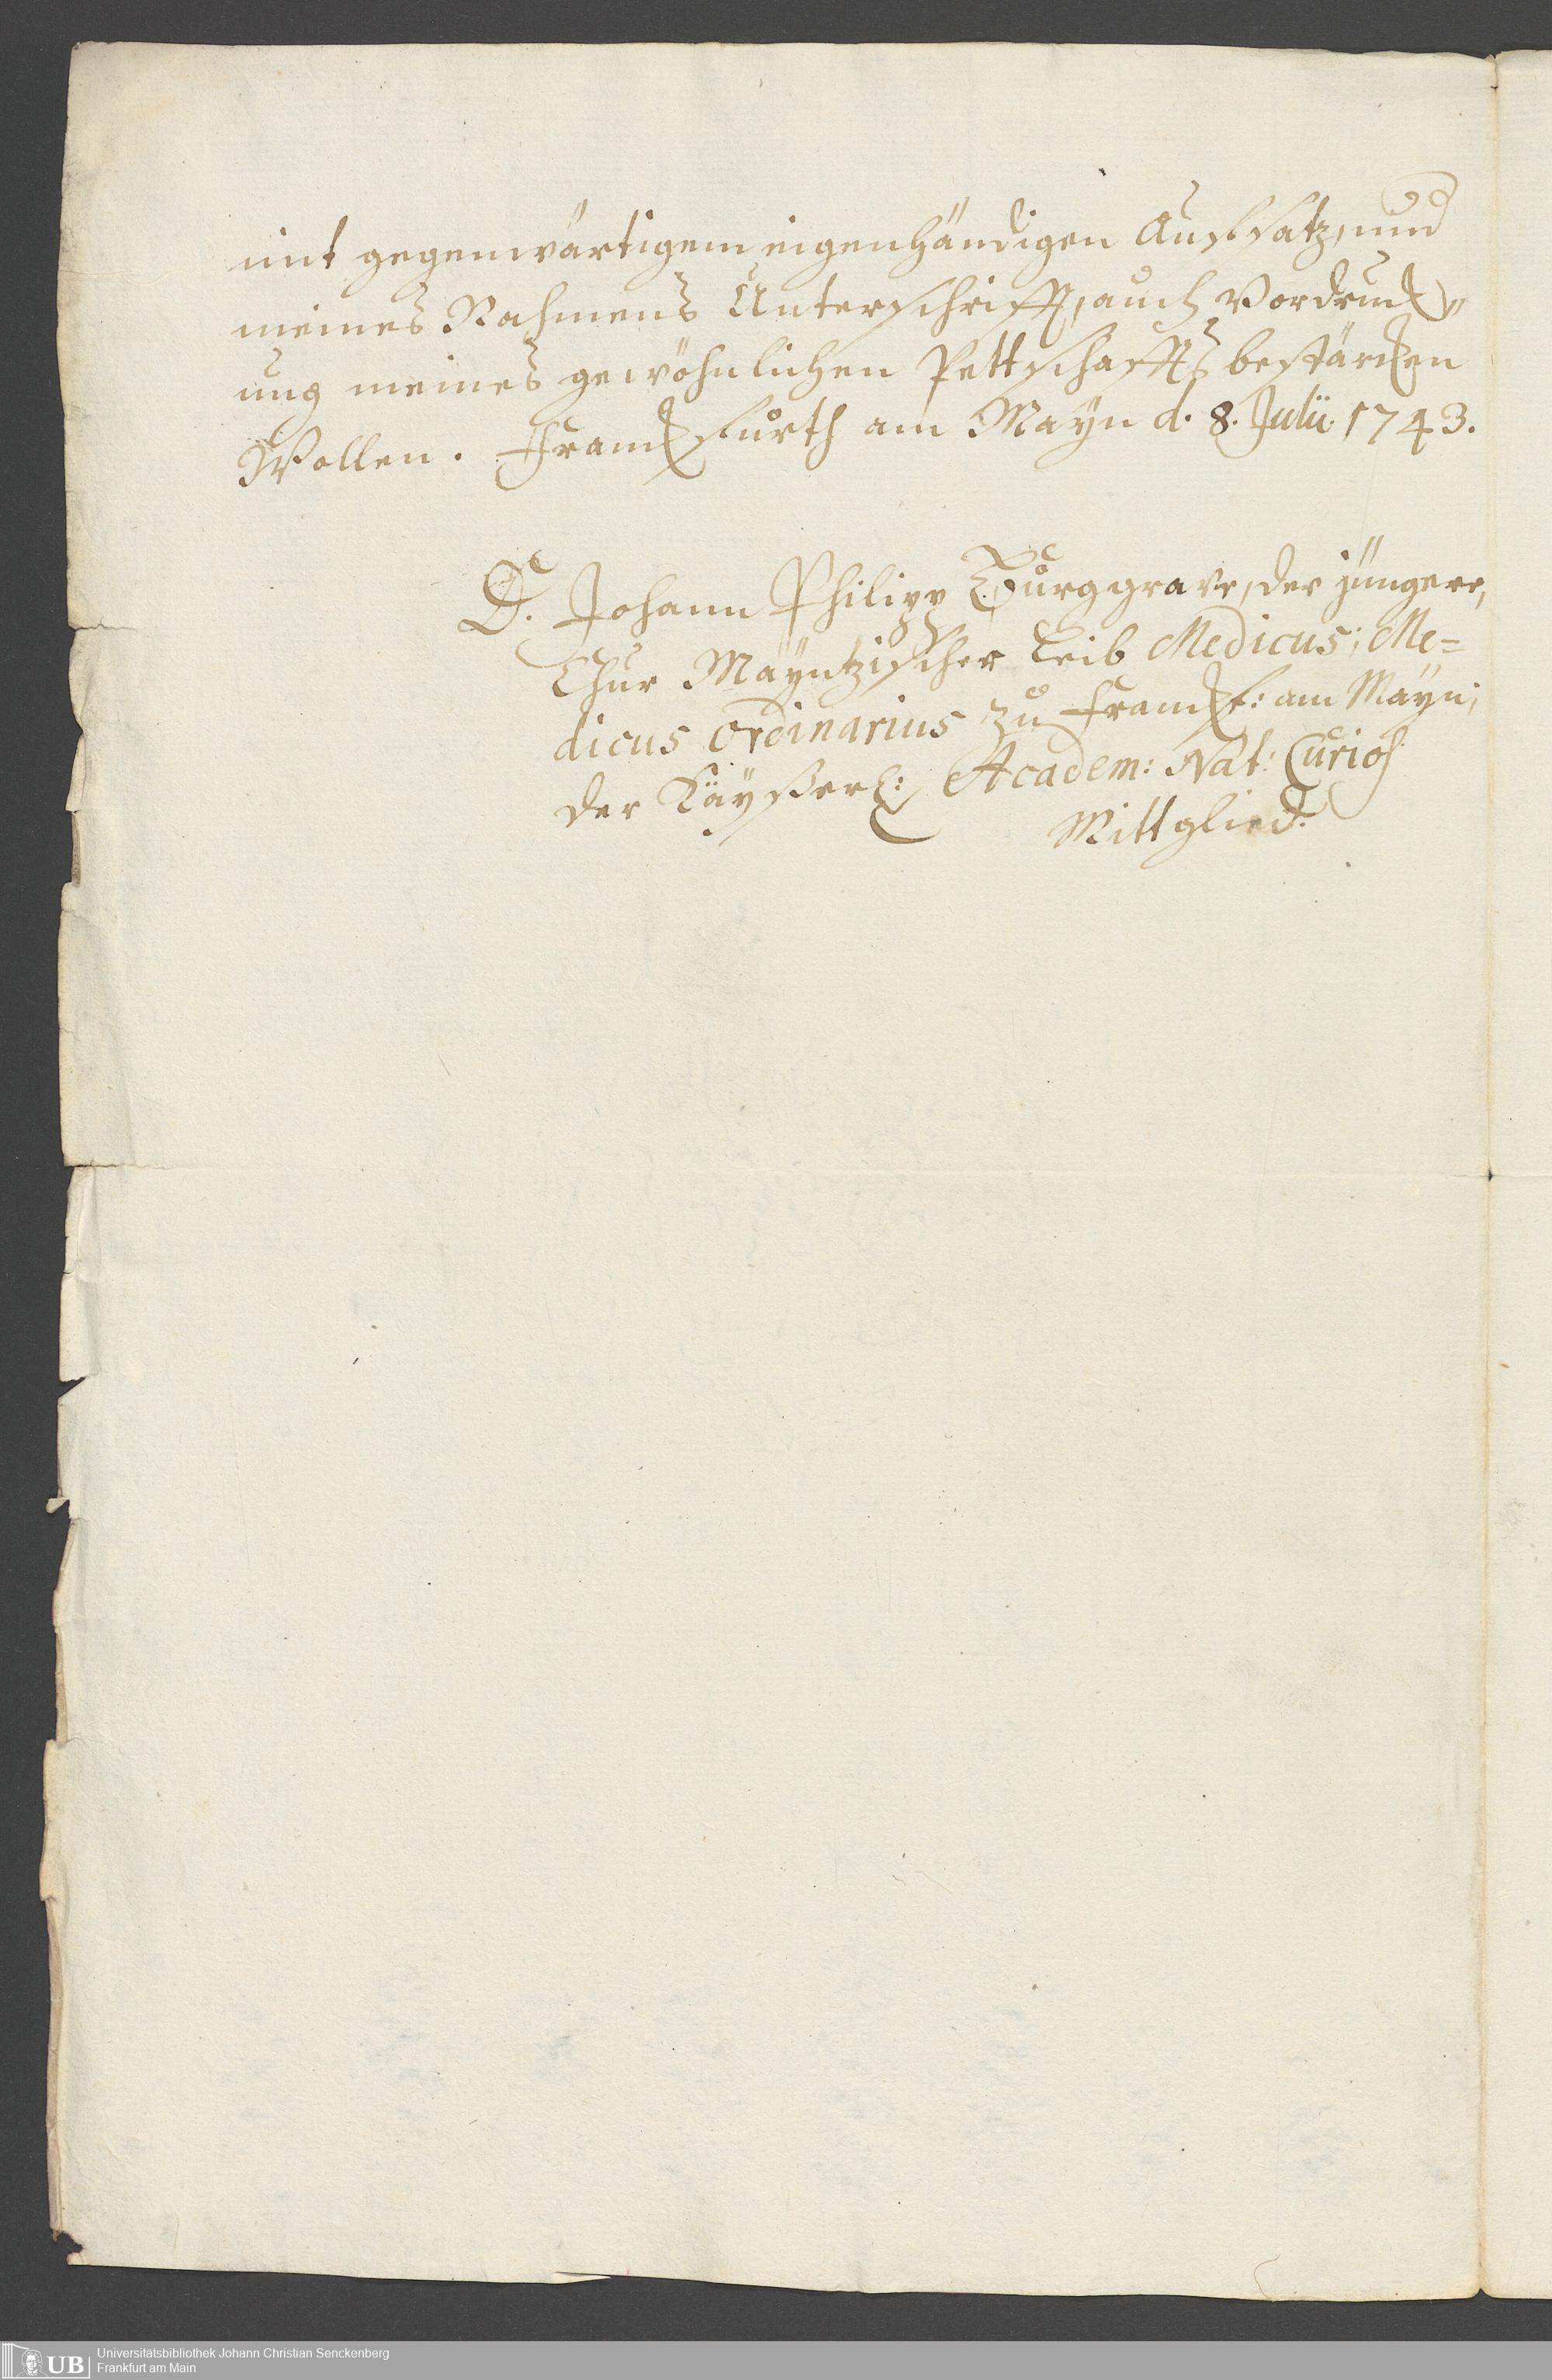 mit gegenwärtigem eigenhändigen Auffsatz, und
meines Nahmens Unterschrifft, auch Vordruck„
ung meines gewöhnlichen Pettschaffts bestärcken
Wollen. Franckfurth am Mayn d. 8. Julii 1743.
D. Johann Philipp Burggrave, der jüngere,
Chur Mayntzischer Leib Medicus; Me=
dicus Ordinarius zu Franckf: am Mayn;
der Käyßerl: Academ: Nat: Curios:
Mittglied.
UB
Universitätsbibliothek Johann Christian Senckenberg
Frankfurt am Main